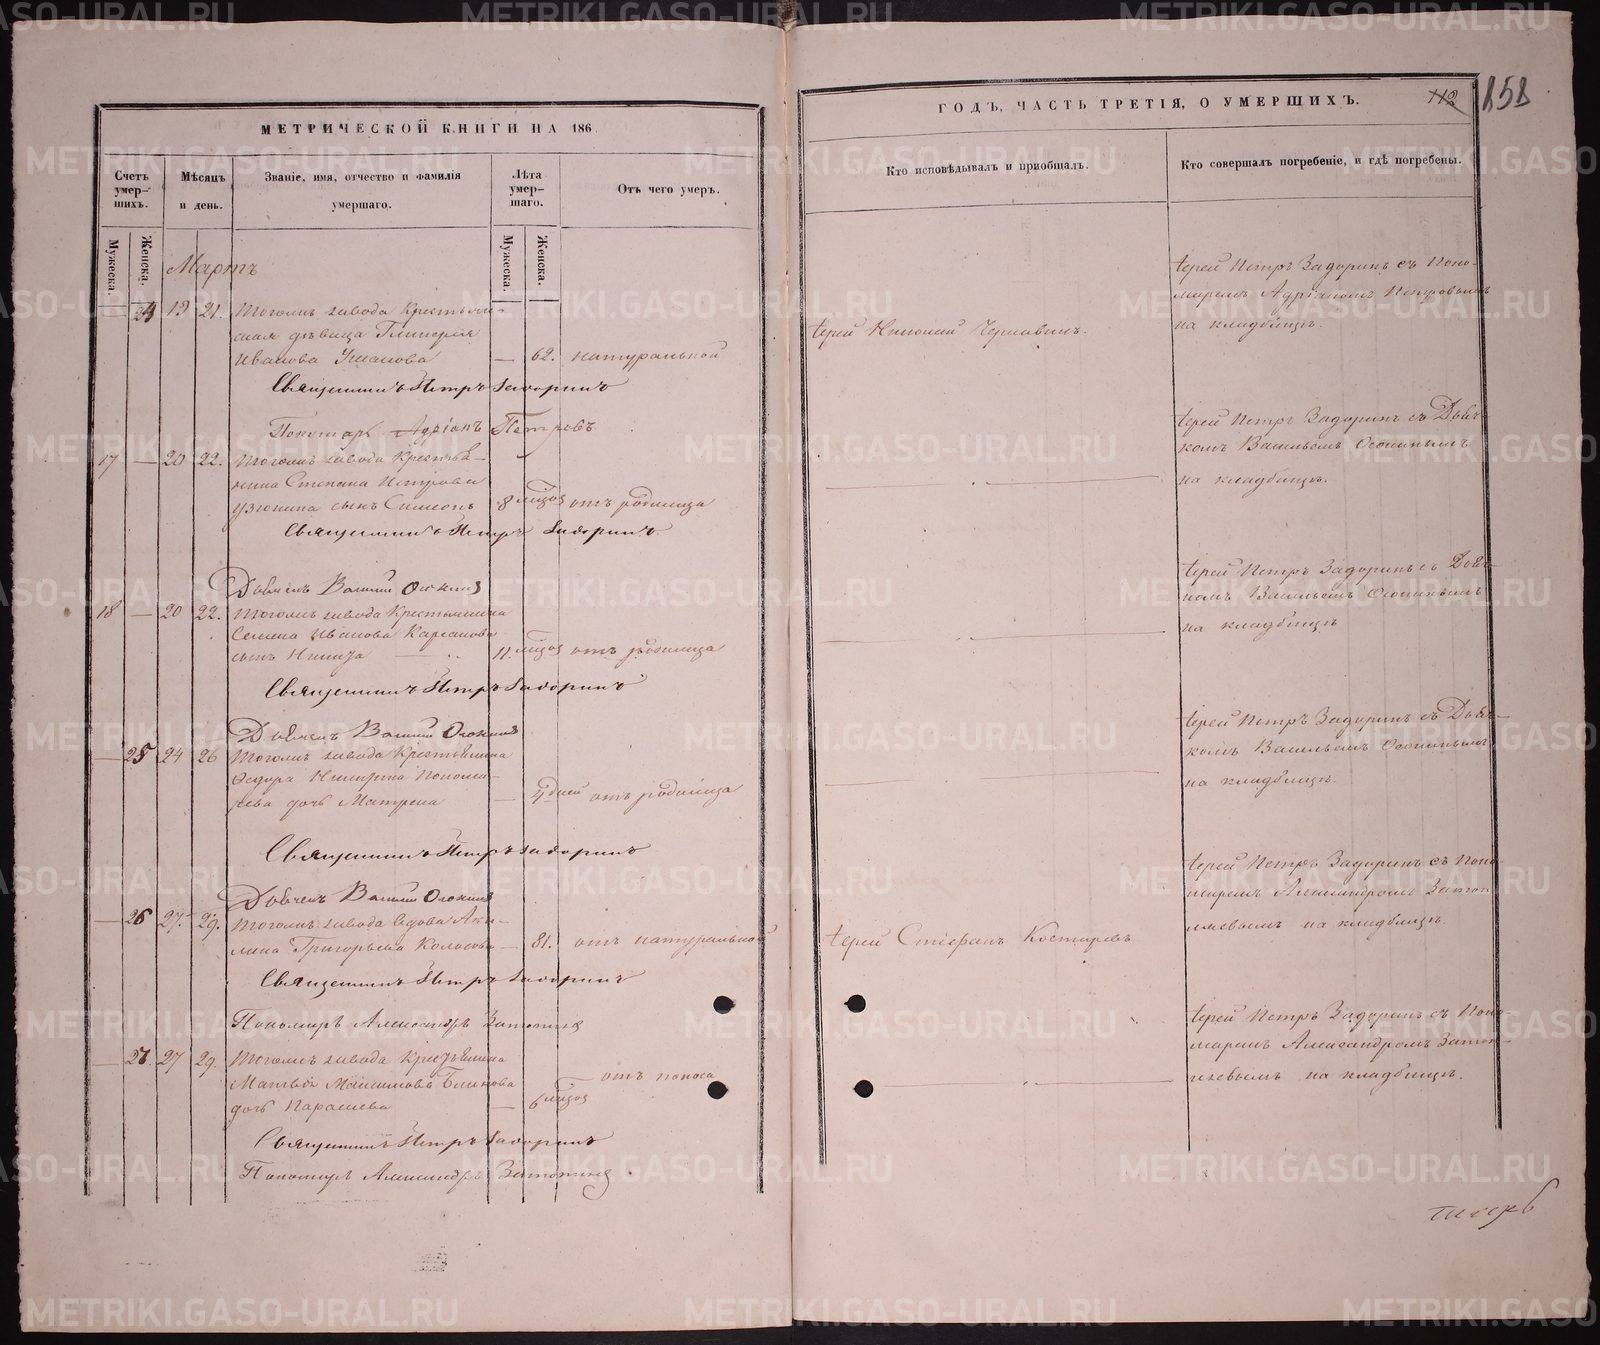 МЕТРИЧЕСКОЙ КНИГИ НА 186
Счетъ умер-шихъ.
Мужеска.
Женска.
Мѣсяцъ и день.
Званіе, имя, отчество и фамилія
умершаго.
Лѣта умер-шаго.
Мужеска.
Женска.
Отъ чего умеръ.
Мартъ
24 19 21. Тогоже завода Крестьян-
ская дѣвица Гликерія
Иванова Ушакова — 62. натуральной
Священникъ Петръ Задоринъ
Пономарь Адріанъ Петровъ
17 — 20 22. Тогоже завода Крестья-
нина Степана Петрова
сынъ Симеонъ 8 мѣсяц отъ родимца
Священникъ Петръ Задоринъ
Дьячекъ Василій
18 — 20 22. Тогоже завода Крестьянина
Семена Иванова
сынъ Никита 11. мѣсяц отъ родимца
Священникъ Петръ Задоринъ
Дьячекъ Василій
— 25 24 26 Тогоже завода Крестьянина
Ѳедора Никитина Понома-
рева дочь Матрена — 4 дней отъ родимца
Священникъ Петръ Задоринъ
Дьячекъ Василій
— 26 27. 29. Тогоже завода вдова Аку-
лина Григорьева — 81. отъ натуральной
Священникъ Петръ Задоринъ
Пономарь Александръ
— 27. 29. Тогоже завода Крестьянина
Матвѣя Максимова Блинова
дочь Параскева — 6 мѣсяц отъ поноса
Священникъ Петръ Задоринъ
Пономарь Александръ
ГОДЪ, ЧАСТЬ ТРЕТІЯ, О УМЕРШИХЪ.
112
858
Кто исповѣдывалъ и пріобщалъ.
Кто совершалъ погребеніе, и гдѣ погребены.
Іерей Петръ Задоринъ съ Поно-
маремъ Адріаномъ Петровымъ
на кладбищѣ.
Іерей Николай
Іерей Петръ Задоринъ съ Дьяч-
комъ Васильемъ
на кладбищѣ.
Іерей Петръ Задоринъ съ Дьяч-
комъ Васильемъ
на кладбищѣ
Іерей Петръ Задоринъ съ Дьяч-
комъ Васильемъ
на кладбищѣ.
Іерей Петръ Задоринъ съ Поно-
маремъ Александромъ
на кладбищѣ.
Іерей Стефанъ Костаревъ
Іерей Петръ Задоринъ съ Поно-
маремъ Александромъ
на кладбищѣ.
METRIKI.GASO-URAL.RU